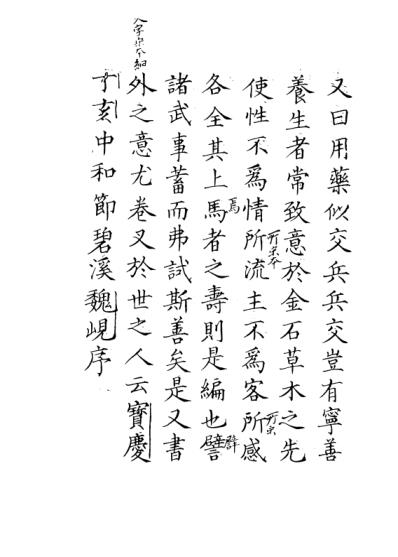 又曰用藥似交兵兵交豈有寧善
養生者常致意於金石草木之先
使性不爲情所流主不爲客所感
各全其上馬者之壽則是編也譬
焉
諸武事蓄而弗試斯善矣是又書
外之意尤卷又於世之人云寶慶
丁亥中和節碧溪魏峴序